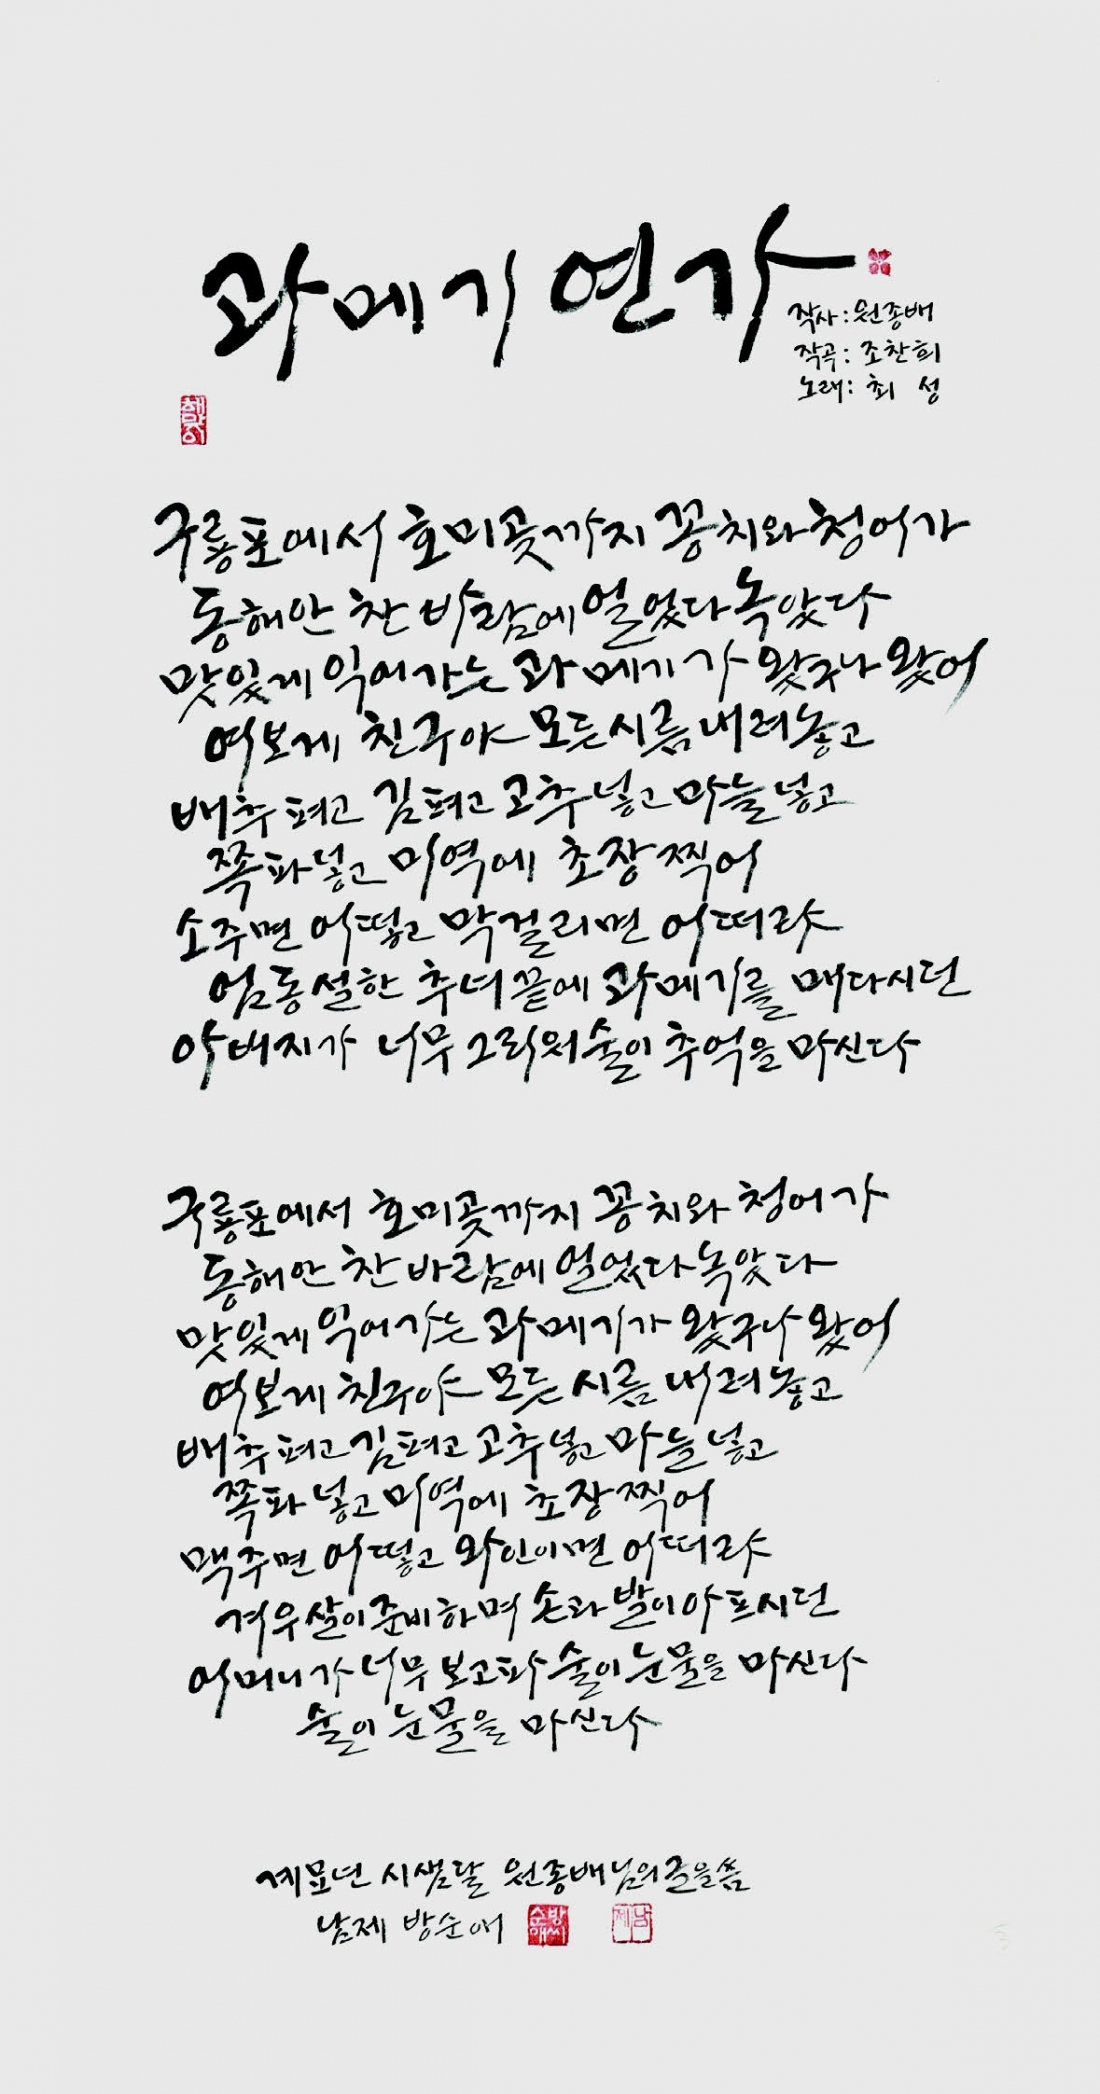 과메기 연가
작사: 원종배
작곡: 조찬희
노래: 최 성
구룡포에서 호미곶까지 꽁치와 청어가
동해안 찬 바람에 얼었다 녹았다
맛있게 익어가는 과메기가 왔구나 왔어
여보게 친구야 모든 시름 내려놓고
배추 펴고 김 펴고 고추 넣고 마늘 넣고
쪽파 넣고 미역에 초장 찍어
소주면 어떻고 막걸리면 어떠랴
엄동설한 추녀 끝에 과메기를 매다시던
아버지가 너무 그리워 술이 추억을 마신다
구룡포에서 호미곶까지 꽁치와 청어가
동해안 찬 바람에 얼었다 녹았다
맛있게 익어가는 과메기가 왔구나 왔어
여보게 친구야 모든 시름 내려놓고
배추 펴고 김 펴고 고추 넣고 마늘 넣고
쪽파 넣고 미역에 초장 찍어
맥주면 어떻고 와인이면 어떠랴
겨우살이 준비하며 손과 발이 아프시던
어머니가 너무 보고파 술이 눈물을 마신다
술이 눈물을 마신다
계묘년 시샘달 원종배님의 글을 씀
남제 방순애
방씨순애
남제